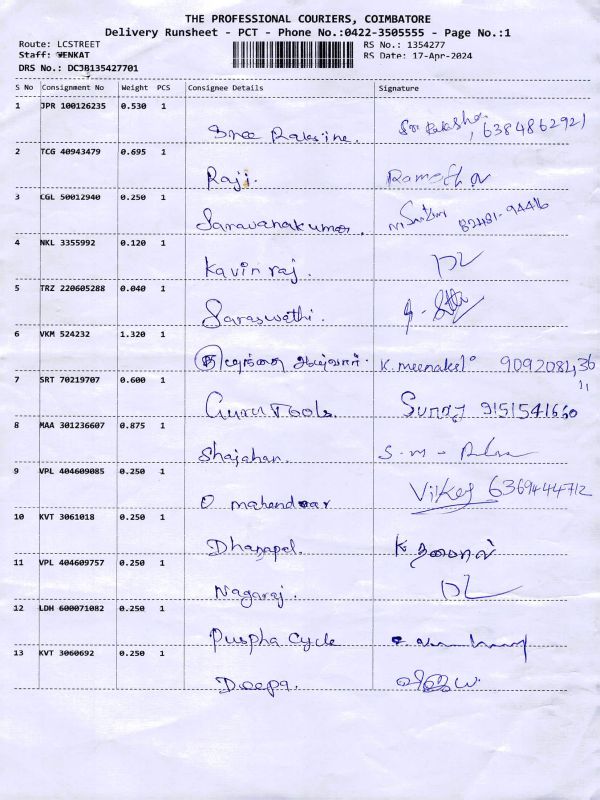 THE PROFESSIONAL COURIERS, COIMBATORE
Delivery Runsheet - PCT - Phone No.:0422-3505555 - Page No.:1
Route: LCSTREET RS No.: 1354277
Staff: VENKAT RS Date: 17-Apr-2024
DRS No.: DCJB135427701
S No Consignment No Weight PCS Consignee Details Signature
1 JPR 100126235 0.530 1
Sree Raksine. 6384862921
2 TCG 40943479 0.695 1
Raji.
3 CGL 50012940 0.250 1
Saravanakumar. 82481-94416
4 NKL 3355992 0.120 1
Kavin raj. DL
5 TRZ 220605288 0.040 1
Saraswathi.
6 VKM 524232 1.320 1
K. meenakshi
7 SRT 70219707 0.600 1
Guru Tools. 9151541660
8 MAA 301236607 0.875 1
Shajahan. S.M -
9 VPL 404609085 0.250 1
O mahendrar 6369444712
10 KVT 3061018 0.250 1
Dhanapal. K தனபால்
11 VPL 404609757 0.250 1
Nagaraj. DL
12 LDH 600071082 0.250 1
Puspha Cycle
13 KVT 3060692 0.250 1
Deepa.